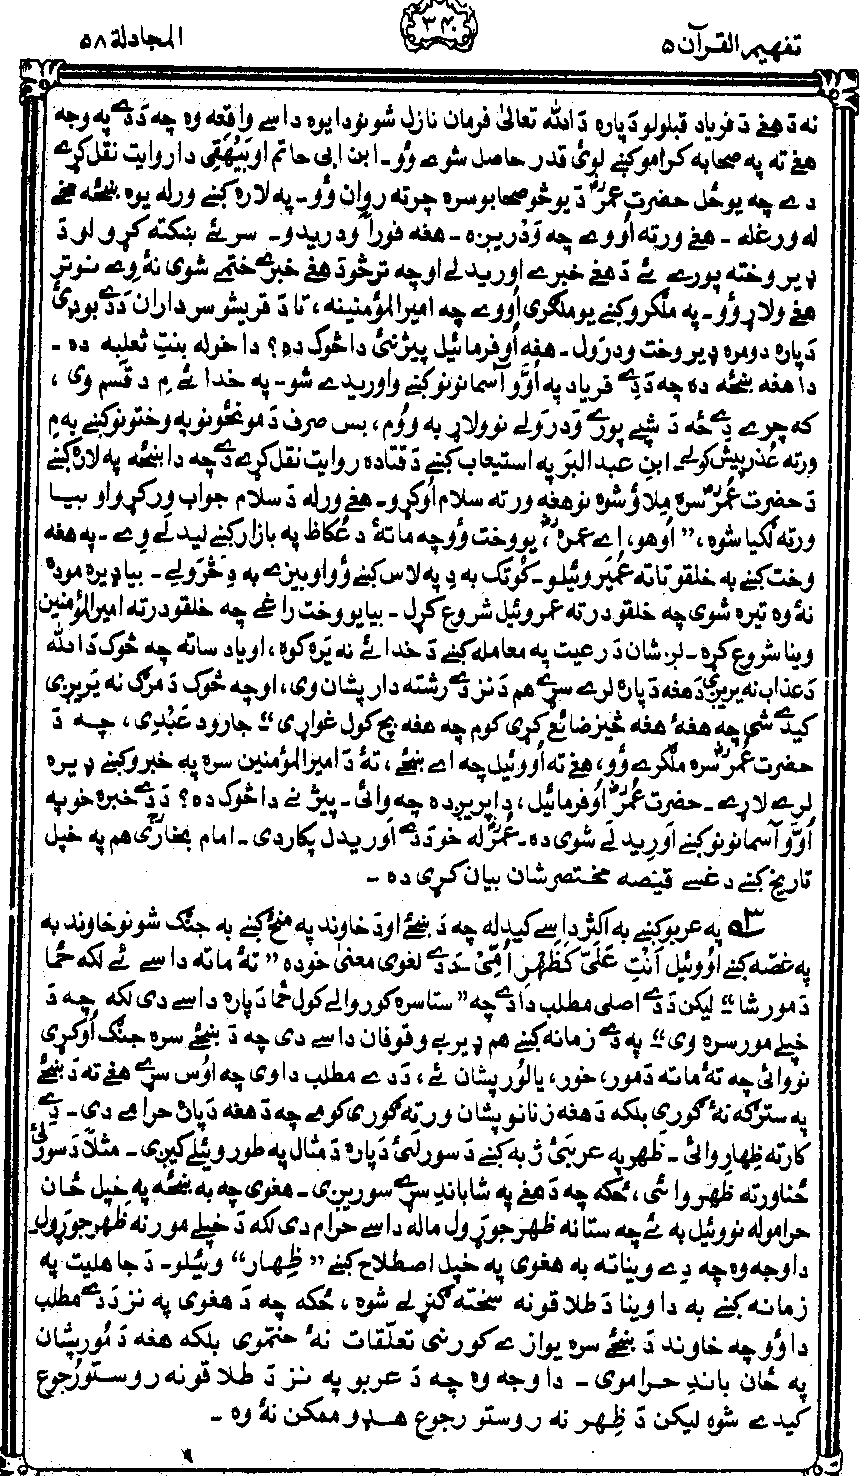 تفهیم القرآن ۵
۳۴۰
المجادلة ۵۸
نه دَ هغے دَ فریاد قبلولو دَپاره دَ الله تعالیٰ فرمان نازل شو نو دا یوه داسے واقعه وه چه دَ دے په وجه
هغے ته په صحابه کرامو کښے لوئ قدر حاصل شوے وُو۔ ابن ابی حاتم او بَیْهَقِی دا روایت نقل کړے
دے چه یو ځل حضرت عمرؓ دَ یو څو صحابو سره چرته روان وُو۔ په لاره کښے ورله یوه ښځه مخے
له ورغله۔ هغے ورته اُووے چه وَدَرېږه۔ هغه فوراً ودرېدو۔ سر ئے ښکته کړو او دَ
ډېر وخته پورے ئے دَ هغے خبرے اورېدلے او چه تر څو دَ هغے خبرے ختمے شوی نهٔ وِے نو تر
هغے ولاړ وُو۔ په ملګرو کښے یو ملګری اُووے چه امیرالمؤمنینه، تا دَ قریشو سرداران دَ دے بوډۍ
دَپاره دومره ډېر وخت ودرول۔ هغه اُوفرمائیل پیژنئ دا څوک ده؟ دا خوله بنتِ ثعلبه ده۔
دا هغه ښځه ده چه دَ دے فریاد په اُوو آسمانونو کښے واورېدے شو۔ په خدائے مِ دِ قسم وی،
که چرے دے څه دَ شپے پورے وَدَرَولے نو ولاړ به وُوم، بس صرف دَ مونځونو په وختونو کښے به مِ
ورته عُذر پیش کولے۔ ابن عبد البَر په استیعاب کښے دَ قتاده روایت نقل کړے دے چه دا ښځه په لاره کښے
دَ حضرت عُمرؓ سره مِلاؤ شوه نو هغه ورته سلام اُوکړو۔ هغے ورله دَ سلام جواب ورکړو او بیا
ورته لګیا شوه، ”اُوهو، اے عمره، یو وخت وُو چه ما تهٔ دَ عُکاظ په بازار کښے لیدلے وِے۔ په هغه
وخت کښے به خلقو تا ته عُمَیر وئیلو۔ کُوټک به دِ په لاس کښے وُو او بیزے به دِ څرَولے۔ بیا ډېره موده
نهٔ وه تېره شوی چه خلقو درته عمر وئیل شروع کړل۔ بیا یو وخت راغے چه خلقو درته امیرالمؤمنین
وینا شروع کړه۔ لږ شان دَ رعیت په معامله کښے دَ خدائے نه یَره کوه، او یاد ساته چه څوک دَ الله
دَ عذاب نه یریږی دَ هغه دَپاره لرے سړے هم دَ نزدے رشته دار پشان وی، او چه څوک دَ مرګ نه یریږی
کېدے شی چه هغه هغه څیز ضائع کړی کوم چه هغه بچ کول غواړی“۔ جارود عَبْدِی، چه دَ
حضرت عُمرؓ سره ملګرے وُو، هغے ته اُووئیل چه اے ښځے، تهٔ دَ امیرالمؤمنین سره په خبرو کښے ډېره
لرے لاړے۔ حضرت عُمرؓ اُوفرمائیل، دا پرېږده چه وائی۔ پیژنے دا څوک ده؟ دَ دے خبره خو په
اُوو آسمانونو کښے اَورېدلے شوی ده۔ عُمرؓ له خو دَ دے اَورېدل پکار دی۔ امام بخاریؒ هم په خپل
تاریخ کښے دغسے قیصه مختصر شان بیان کړی ده۔
۳ په عربو کښے به اکثر داسے کېدله چه دَ ښځے او دَ خاوند په منځ کښے به جنګ شو نو خاوند به
په غصه کښے اُووئیل اَنْتِ عَلَیَّ کَظَهْرِ اُمِّیْ۔ دَ دے لغوی معنیٰ خو ده ”تهٔ ما ته داسے ئے لکه ځما
دَ مور شا“ لیکن دَ دے اصلی مطلب دا دے چه ”ستا سره کوروالے کول ځما دَپاره داسے دی لکه چه دَ
خپلے مور سره وی“ په دے زمانه کښے هم ډېر بے وقوفان داسے دی چه دَ ښځے سره جنګ اُوکړی
نو وائی چه تهٔ ما ته دَ مور، خور، یا لُور پشان ئے، دَ دے مطلب دا وی چه اوُس سړے هغے ته دَ ښځے
په سترګه نهٔ ګوری بلکه دَ هغه زنانو پشان ورته ګوری کومے چه دَ هغه دَپاره حرامے دی۔ دے
کار ته ظِهار وائی۔ ظَهر په عربئ ژبه کښے دَ سورلئ دَپاره دَ مثال په طور وئیلے کېږی۔ مثلاً دَ سورلئ
ځناور ته ظهر وائی، ځکه چه دَ هغے په شا باندِ سړے سورېږی۔ هغوی چه به ښځه په خپل ځان
حراموله نو وئیل به ئے چه ستا نه ظهر جوړول ما له داسے حرام دی لکه دَ خپلے مور نه ظهر جوړول۔
دا وجه وه چه دے وینا ته به هغوی په خپل اصطلاح کښے ”ظِهار“ وئیلو۔ دَ جاهلیت په
زمانه کښے به دا وینا دَ طلاقو نه سخته ګنړلے شوه، ځکه چه دَ هغوی په نزد دَ دے مطلب
دا وُو چه خاوند دَ ښځے سره یوازے کورنی تعلّقات نهٔ ختموی بلکه هغه دَ مُور پشان
په ځان باندِ حراموی۔ دا وجه وه چه دَ عربو په نزد دَ طلاقو نه روستو رُجوع
کېدے شوه لیکن دَ ظِهر نه روستو رجوع هډو ممکن نهٔ وه۔